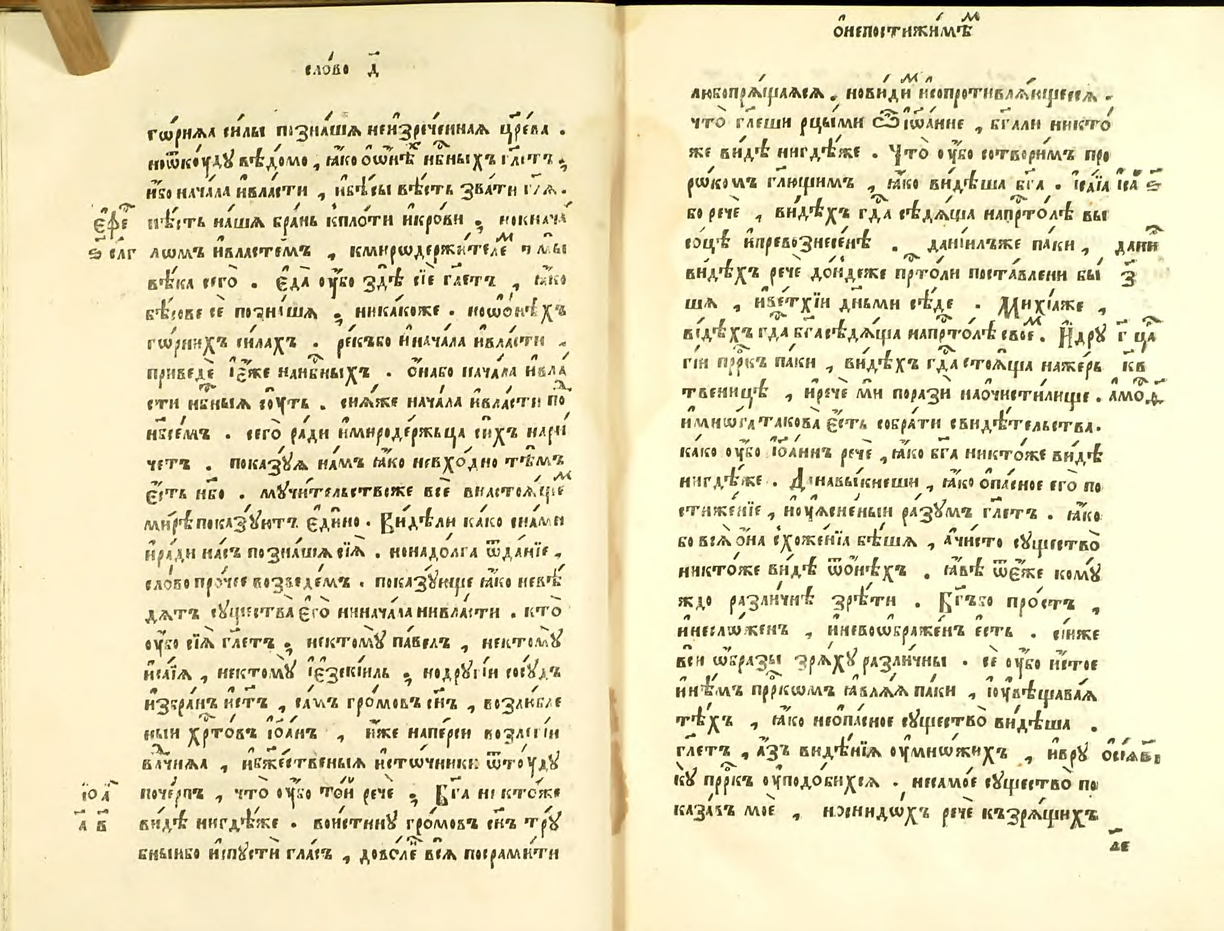 сло́во д҃
го́рнѧѧ си́лы позна́шѧ неи҆зрече́ннаѧ цр҃е́ва .
но ѿкꙋ́дꙋ вѣ́домо , ꙗ҆́ко о҆ ѡ҆нѣ́х нбⷭ҇ныхъ гл҃етъ ;
и҆́бо нача́ла и҆ вла́сти , и҆ бѣ́сы вѣ́сть зва́ти гл҃ѧ .
є҆фе
нѣ́сть на́шѧ бра́нь к пло́ти и҆ кро́ви , но к нача́
ѕ҃ сл҃г
лѡмъ и҆ власте́мъ , к миродержи́телем тмы̀
вѣ́ка сего̀ . є҆да̀ ᲂу҆̀бо здѣ̀ сїѐ гл҃етъ , ꙗ҆́ко
бѣ́сове сѐ позна́шѧ ; ника́коже . но ѡ҆ ѻ҆нѣ́хъ
го́рнихъ си́лахъ . ре́къ бо и҆ нача́ла и҆ вла́сти ,
приведѐ и҆ є҆́же на нбⷭ҇ныхъ . ѻ҆́на бо нача́ла и҆ вла́
сти нбⷭ҇ныѧ сꙋ́ть . сиѧ́же нача́ла и҆ вла́сти по
нбⷭ҇е́мъ . сего̀ ра́ди и҆ мироде́ржьца си́хъ нари
че́тъ . показꙋ́ѧ на́мъ ꙗ҆́ко невхо́дно тѣ́мъ
є҆́сть нб҃о . мꙋчи́тельствоже всѐ в настоѧ́щем
ми́рѣ показꙋ́ютъ є҆ди́но . Ви́дѣли ка́ко сна́ми
и҆ ра́ди на́съ позна́шѧ сїѧ̀ . но на до́лга ѿда́нїе ,
сло́во про́чее возведе́мъ . показꙋ́юще ꙗ҆́ко невѣ́
дѧтъ сꙋщества̀ є҆го̀ ни нача́ла ни вла́сти . кто̀
ᲂу҆́бо сїѧ̀ гл҃етъ ; не к томꙋ̀ па́велъ , не к томꙋ̀
и҆са́їѧ , не к томꙋ̀ і҆езекі́иль ; но дрꙋгі́й сосꙋ́дъ
и҆збра́нъ є҆́стъ , са́мъ гро́мовъ сн҃ъ , возлю́бле
ный хрⷭ҇то́въ і҆ѻа́нъ , и҆́же на пе́рси возлегі́и
влⷣчнѧѧ , и҆ бжⷭ҇е́ственыѧ и҆сто́чники ѿтꙋ́дꙋ
і҆ѻа҃
поче́рпъ , что̀ ᲂу҆́бо то́й речѐ ; Бг҃а никто́же
а҃ в҃
ви́дѣ нигдѣ́же . во и҆́стинꙋ гро́мовъ сн҃ъ трꙋ́
бныи бо и҆спꙋстѝ гла́съ , дово́ле всѧ̀ посрами́ти
ѻ҆ непостижи́мѣм
любопрѧ́щаѧсѧ . но ви́дим и҆ сопротивлѧ́ющеесѧ .
что̀ гл҃еши рцы́ ми ѽ і҆ѡа́нне , бг҃а ли никто́
же ви́дѣ нигдѣ́же . Что̀ ᲂу҆́бо сотвори́мъ про
рѡ́комъ гл҃ющимъ , ꙗ҆́ко ви́дѣша бг҃а . і҆са́їа
і҆са҃ ѕ҃
бо речѐ , ви́дѣхъ гдⷭ҇а сѣдѧ́ща на прⷭ҇то́лѣ вы
со́цѣ и҆ превознесе́нѣ . данїи́лъже па́ки ,
дани
ви́дѣхъ речѐ до́ндеже прⷭ҇то́ли поста́влени бы́
з҃
шѧ , и҆ ве́тхїи дн҃ьми сѣ́де . Михі́аже ,
ви́дѣхъ гдⷭ҇а бг҃а сѣдѧ́ща на прⷭ҇то́лѣ свое́м . И҆ дрꙋ
г҃ цр҃
гі́и прⷪ҇ро́къ па́ки , ви́дѣхъ гдⷭ҇а стоѧ́ща на же́рь
кв
твеницѣ , и҆ речѐ ми поразѝ на ѻ҆чисти́лище .
амо҃ ѳ҃
и҆ мнѡ́га такова̀ є҆́сть собра́ти свидѣ́тельства .
ка́ко ᲂу҆́бо і҆ѻа́ннъ речѐ , ꙗ҆́ко бг҃а никто́же ви́дѣ
нигдѣ́же . Да навы́кнеши , ꙗ҆́ко ѻ҆па́сное є҆го̀ по
стиже́нїе , и҆ ᲂу҆ѧсне́ныи ра́зꙋмъ гл҃етъ . ꙗ҆́ко
бо всѧ̀ ѻ҆́на схоже́нїѧ бѣ́шѧ , а҆ чи́сто сꙋщество̀
никто́же ви́дѣ ѿ ѻ҆нѣ́хъ . ꙗ҆́вѣ ѿ є҆́же комꙋ́
ждо разли́чнѣ зрѣ́ти . Бг҃ъ бо про́стъ ,
и҆ несло́женъ , и҆ невоѡбраже́нъ є҆́сть . сїи́же
вси ѡ҆́бразы зрѧ́хꙋ разли́чны . сѐ ᲂу҆́бо и҆́стое
и҆нѣ́мъ прⷪ҇ро́кѡмъ ꙗ҆влѧ́ѧ па́ки , и҆ ᲂу҆вѣщава́ѧ
тѣ́хъ , ꙗ҆́ко не ѻ҆па́сное сꙋщество̀ ви́дѣша .
гл҃етъ , а҆́зъ видѣ́нїѧ ᲂу҆мно́жихъ , и҆ в рꙋ
ѻ҆сі́ѧ в҃і
кꙋ̀ прⷪ҇ро́къ ᲂу҆подо́бихсѧ . не само́е сꙋщество̀ по
каза́въ моѐ , но снидо́хъ речѐ къ зрѧ́щихъ
де